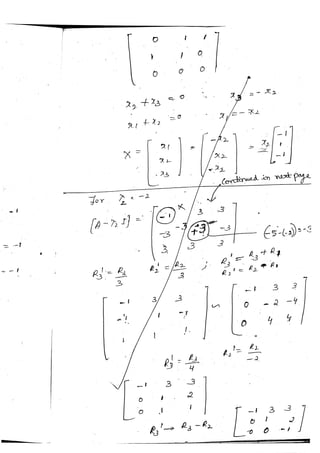 0 1 1
1 1 0
0 0 0
x₂ + x₃ = 0 ∴ x₃ = -x₂
x₁ + x₂ = 0 x₁ = -x₂
X = [x₁ x₂ x₃] = [-x₂ x₂ -x₂] = x₂ [-1 1 -1]
Continued in next page
For λ₂ = -2
[A-λI] = -1 3 3
-3 -3 +3 -3 (-5-(-2)) = -3
3 3 3
R₃' = R₃/3 R₂' = R₂/3 ; R₃' = R₃ + R₁
R₂' = R₂ + R₁
-1 3 3 ~ -1 3 3
-1 1 -1 0 -2 -4
1 1 1 0 4 4
R₃' = R₃/4 R₂' = R₂/-2
-1 3 3
0 1 2
0 1 1
R₃' → R₃ - R₂
-1 3 3
0 1 2
0 0 -1
-1
= -1
- -1